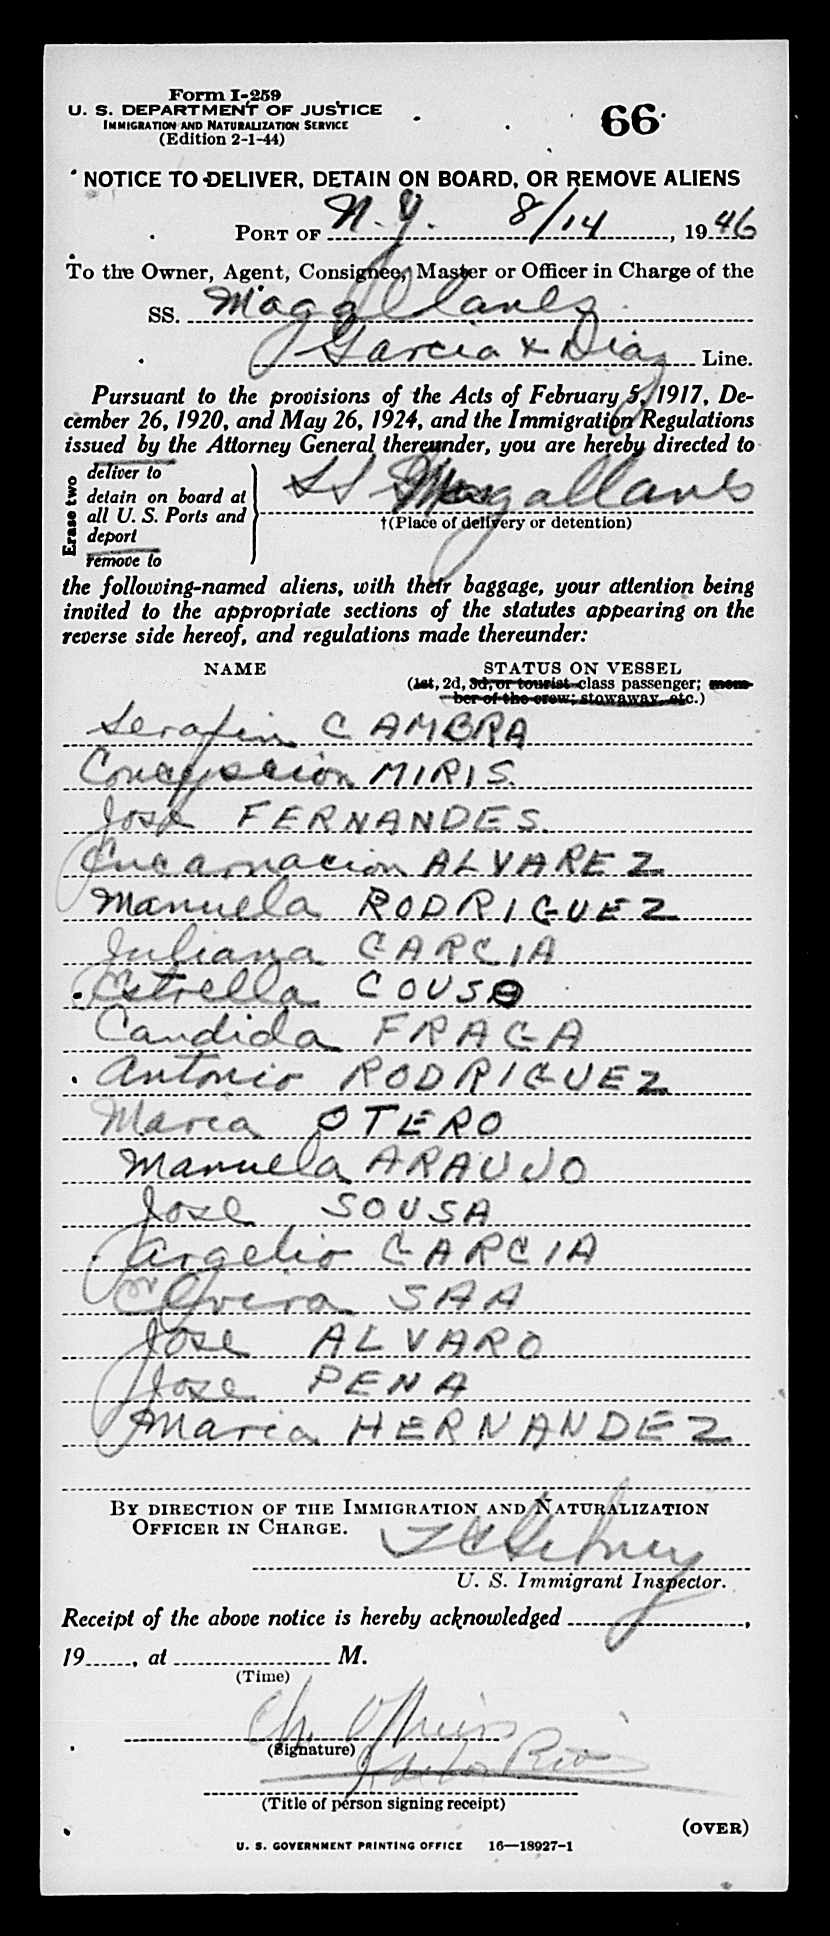 Form I-259
U. S. DEPARTMENT OF JUSTICE
IMMIGRATION AND NATURALIZATION SERVICE
(Edition 2-1-44)
66
NOTICE TO DELIVER, DETAIN ON BOARD, OR REMOVE ALIENS
PORT OF N.Y. 8/14, 1946
To the Owner, Agent, Consignee, Master or Officer in Charge of the
SS. Magallanes
Garcia & Diaz Line.
Pursuant to the provisions of the Acts of February 5, 1917, De-
cember 26, 1920, and May 26, 1924, and the Immigration Regulations
issued by the Attorney General thereunder, you are hereby directed to
Erase two
deliver to
detain on board at
all U. S. Ports and
deport
remove to
SS Magallanes
†(Place of delivery or detention)
the following-named aliens, with their baggage, your attention being
invited to the appropriate sections of the statutes appearing on the
reverse side hereof, and regulations made thereunder:
NAME STATUS ON VESSEL
(1st, 2d, 3d, or tourist class passenger; mem-
ber of the crew; stowaway, etc.)
Serafin CAMBRA
Concepcion MIRIS.
Jose FERNANDES.
Encarnacion ALVAREZ
Manuela RODRIGUEZ
Juliana GARCIA
Estrella COUSO
Candida FRAGA
Antonio RODRIGUEZ
Maria OTERO
Manuela ARAUJO
Jose SOUSA
Argelio GARCIA
Elvira SAA
Jose ALVARO
Jose PENA
Maria HERNANDEZ
BY DIRECTION OF THE IMMIGRATION AND NATURALIZATION
OFFICER IN CHARGE.
U. S. Immigrant Inspector.
Receipt of the above notice is hereby acknowledged ,
19 , at M.
(Time)
(Signature)
(Title of person signing receipt)
(OVER)
U. S. GOVERNMENT PRINTING OFFICE 16—18927-1